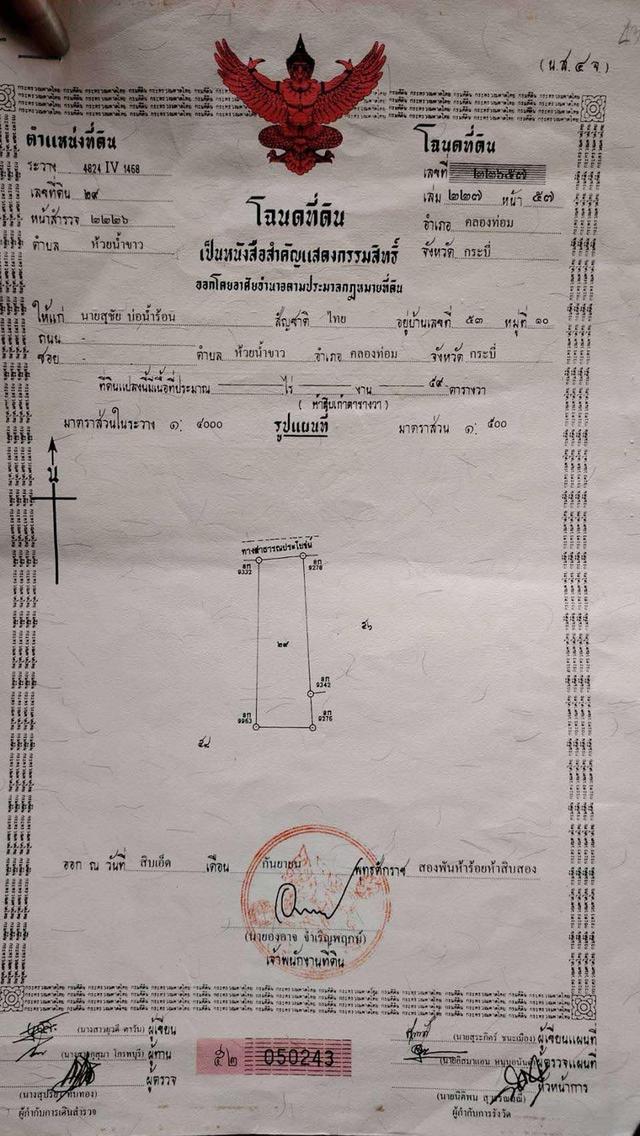 (น.ส.๔ จ.)
ตำแหน่งที่ดิน
ระวาง 4824 IV 1468
เลขที่ดิน ๒๙
หน้าสำรวจ ๒๒๒๖
ตำบล ห้วยน้ำขาว
โฉนดที่ดิน
เลขที่ ๒๒๖๕๗
เล่ม ๒๒๗ หน้า ๕๗
อำเภอ คลองท่อม
จังหวัด กระบี่
โฉนดที่ดิน
เป็นหนังสือสำคัญแสดงกรรมสิทธิ์
ออกโดยอาศัยอำนาจตามประมวลกฎหมายที่ดิน
ให้แก่ นายสุชัย บ่อน้ำร้อน สัญชาติ ไทย อยู่บ้านเลขที่ ๕๓ หมู่ที่ ๑๐
ถนน -
ซอย - ตำบล ห้วยน้ำขาว อำเภอ คลองท่อม จังหวัด กระบี่
ที่ดินแปลงนี้มีเนื้อที่ประมาณ ไร่ งาน ๕๙ ตารางวา
(ห้าสิบเก้าตารางวา)
มาตราส่วนในระวาง ๑: ๔๐๐๐ รูปแผนที่ มาตราส่วน ๑: ๕๐๐
น
ทางสาธารณประโยชน์
9332
9278
๒๙
๕๖
9342
9963
9276
๕๘
ออก ณ วันที่ สิบเอ็ด เดือน กันยายน พุทธศักราช สองพันห้าร้อยห้าสิบสอง
(นายองอาจ จำเริญพฤกษ์)
เจ้าพนักงานที่ดิน
ผู้เขียน
ผู้ทาน
ผู้ตรวจ
ผู้กำกับการเดินสำรวจ
๕๒ 050243
ผู้เขียนแผนที่
ผู้ตรวจแผนที่
หัวหน้าการ
ผู้กำกับการรังวัด